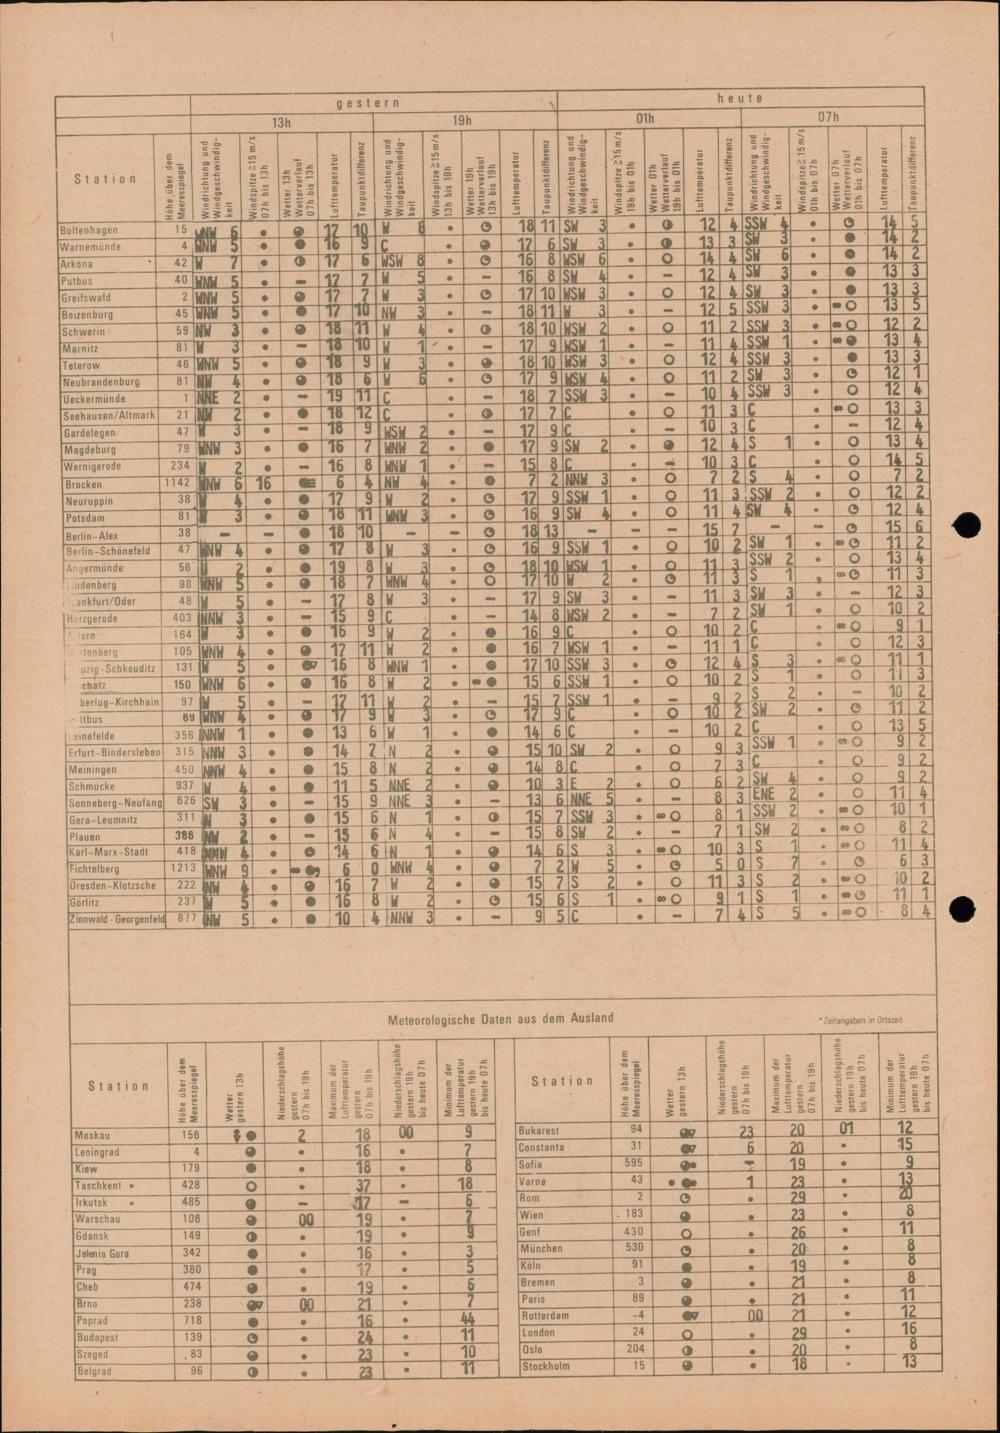 gestern heute
13h 19h 01h 07h
Station
Höhe über dem Meeresspiegel
Windrichtung und Windgeschwindigkeit
Windspitze ≥ 15 m/s 07h bis 13h
Wetter 13h Wetterverlauf 07h bis 13h
Lufttemperatur
Taupunktdifferenz
Windrichtung und Windgeschwindigkeit
Windspitze ≥ 15 m/s 13h bis 19h
Wetter 19h Wetterverlauf 13h bis 19h
Lufttemperatur
Taupunktdifferenz
Windrichtung und Windgeschwindigkeit
Windspitze ≥ 15 m/s 19h bis 01h
Wetter 01h Wetterverlauf 19h bis 01h
Lufttemperatur
Taupunktdifferenz
Windrichtung und Windgeschwindigkeit
Windspitze ≥ 15 m/s 01h bis 07h
Wetter 07h Wetterverlauf 01h bis 07h
Lufttemperatur
Taupunktdifferenz
Boltenhagen 15 WNW 6 17 10 W 6 18 11 SW 3 12 4 SSW 4 14 5
Warnemünde 4 WNW 5 16 9 C 17 6 SW 3 13 3 SW 3 14 2
Arkona 42 W 7 17 6 WSW 8 16 8 WSW 6 14 4 SW 6 14 2
Putbus 40 WNW 5 17 7 W 5 16 8 SW 4 12 4 SW 3 13 3
Greifswald 2 WNW 5 17 7 W 3 17 10 WSW 3 12 4 SW 3 13 3
Boizenburg 45 WNW 5 17 10 NW 3 18 11 W 3 12 5 SSW 3 13 5
Schwerin 59 NW 3 18 11 W 4 18 10 WSW 2 11 2 SSW 3 12 2
Marnitz 81 W 3 18 10 W 1 17 9 WSW 1 11 4 SSW 1 13 4
Teterow 46 WNW 5 18 9 W 3 18 10 WSW 3 12 4 SSW 3 13 3
Neubrandenburg 81 NW 4 18 6 W 6 17 9 WSW 4 11 2 SW 3 12 1
Ueckermünde 1 NNE 2 19 11 C 18 7 SSW 3 10 4 SSW 3 12 4
Seehausen/Altmark 21 NW 2 18 12 C 17 7 C 11 3 C 13 3
Gardelegen 47 W 3 18 9 WSW 2 17 9 C 10 3 C 12 4
Magdeburg 79 WNW 3 16 7 WNW 2 17 9 SW 2 12 4 S 1 13 4
Wernigerode 234 W 2 16 8 WNW 1 15 8 C 10 3 C 14 5
Brocken 1142 WNW 6 16 6 4 NW 4 7 2 NNW 3 7 2 S 4 7 2
Neuruppin 38 W 4 17 9 W 2 17 9 SSW 1 11 3 SSW 2 12 2
Potsdam 81 W 3 18 11 WNW 3 16 9 SW 4 11 4 SW 4 12 4
Berlin-Alex 38 – – 18 10 – – 18 13 – – – 15 7 – – 15 6
Berlin-Schönefeld 47 WNW 4 17 8 W 3 16 9 SSW 1 10 2 SW 1 11 2
Angermünde 56 2 19 8 W 3 18 10 WSW 1 11 3 SSW 2 13 4
indenberg 98 WNW 5 18 7 WNW 4 17 10 W 2 11 3 S 1 11 3
ankfurt/Oder 48 W 5 17 8 W 3 17 9 SW 3 11 3 SW 3 12 3
Harzgerode 403 NNW 3 15 9 C 14 8 WSW 2 7 2 SW 1 10 2
tern 164 W 3 16 9 W 2 16 9 C 10 2 C 9 1
tenberg 105 WNW 4 17 11 W 2 16 7 WSW 1 11 1 C 12 3
pzig-Schkeuditz 131 W 5 16 8 WNW 1 17 10 SSW 3 12 4 S 3 11 1
chatz 150 WNW 6 16 8 W 2 15 6 SSW 1 10 2 S 1 11 3
berlug-Kirchhain 97 W 5 17 11 W 2 15 7 SSW 1 9 2 S 2 10 2
ttbus 69 WNW 4 17 9 W 3 17 9 C 10 2 SW 2 11 2
einefelde 356 NNW 1 13 6 W 1 14 6 C 10 2 C 13 5
Erfurt-Bindersleben 315 NNW 3 14 7 N 2 15 10 SW 2 9 3 SSW 1 9 2
Meiningen 450 NNW 4 15 8 N 2 14 8 C 7 3 C 9 2
Schmücke 937 W 4 11 5 NNE 2 10 3 E 2 6 2 SW 4 9 2
Sonneberg-Neufang 626 SW 3 15 9 NNE 3 13 6 NNE 5 8 3 ENE 2 11 4
Gera-Leumnitz 311 3 15 6 N 1 15 7 SSW 3 8 1 SSW 2 10 1
Plauen 386 NW 2 15 6 N 4 15 8 SW 2 7 1 SW 2 8 2
Karl-Marx-Stadt 418 NNW 4 14 6 N 1 14 6 S 3 10 3 S 1 11 4
Fichtelberg 1213 WNW 9 6 0 WNW 4 7 2 W 5 5 0 S 7 6 3
Dresden-Klotzsche 222 NW 4 16 7 W 2 15 7 S 2 11 3 S 2 10 2
Görlitz 237 W 5 16 8 W 2 15 6 S 1 9 1 S 1 11 1
Zinnwald-Georgenfeld 877 NW 5 10 4 NNW 3 9 5 C 7 4 S 5 8 4
Meteorologische Daten aus dem Ausland
*Zeitangaben in Ortszeit
Station
Höhe über dem Meeresspiegel
Wetter gestern 13h
Niederschlagshöhe gestern 07h bis 19h
Maximum der Lufttemperatur gestern 07h bis 19h
Niederschlagshöhe gestern 19h bis heute 07h
Minimum der Lufttemperatur gestern 19h bis heute 07h
Moskau 156 2 18 00 9
Leningrad 4 16 7
Kiew 179 18 8
Taschkent * 428 37 18
Irkutsk * 485 – – 17 – 6
Warschau 106 00 19 7
Gdansk 149 19 9
Jelenia Gora 342 16 3
Prag 380 17 5
Cheb 474 19 6
Brno 238 00 21 7
Poprad 718 16 44
Budapest 139 24 11
Szeged 83 23 10
Belgrad 96 23 11
Station
Höhe über dem Meeresspiegel
Wetter gestern 13h
Niederschlagshöhe gestern 07h bis 19h
Maximum der Lufttemperatur gestern 07h bis 19h
Niederschlagshöhe gestern 19h bis heute 07h
Minimum der Lufttemperatur gestern 19h bis heute 07h
Bukarest 94 23 20 01 12
Constanta 31 6 20 15
Sofia 595 – 19 9
Varna 43 1 23 13
Rom 2 29 20
Wien 183 23 8
Genf 430 26 11
München 530 20 8
Köln 91 19 8
Bremen 3 21 8
Paris 89 21 11
Rotterdam -4 00 21 12
London 24 29 16
Oslo 204 20 8
Stockholm 15 18 13